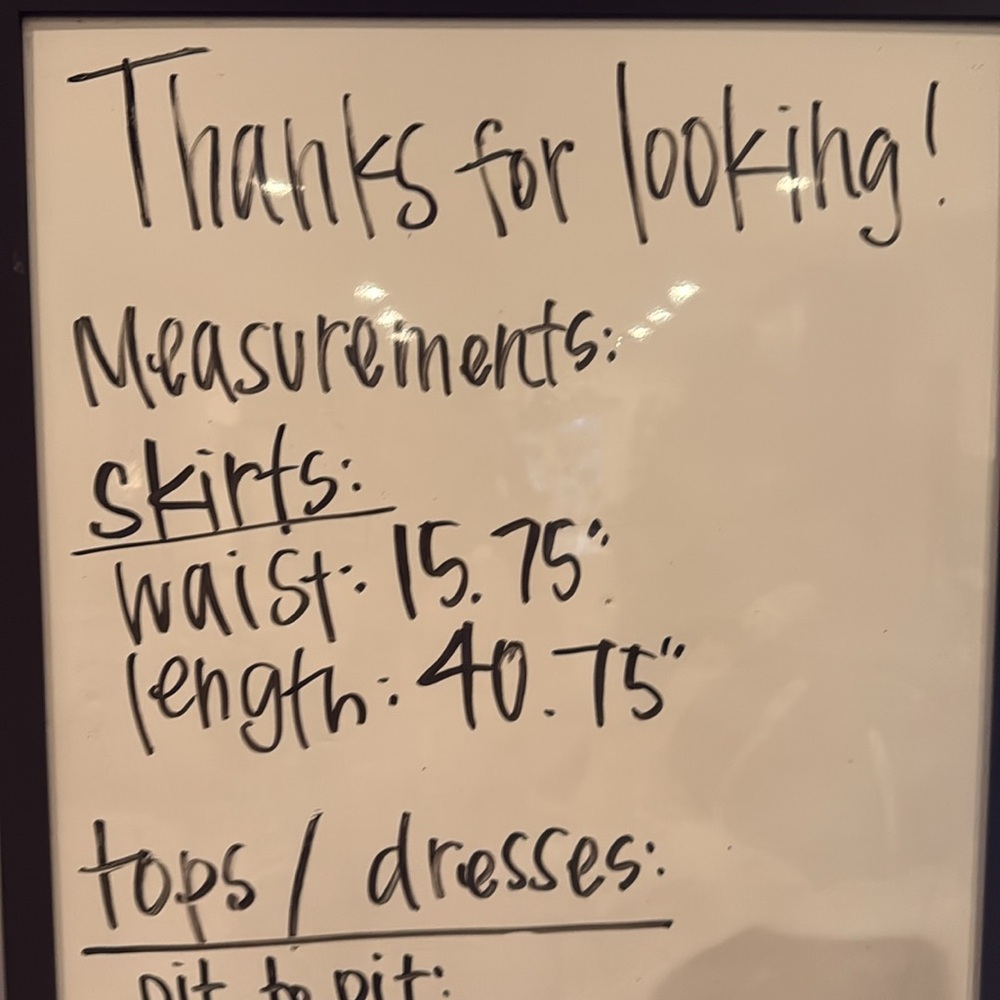 Thanks for looking!
Measurements:
skirts:
waist: 15.75"
length: 40.75"
tops / dresses:
pit to pit: